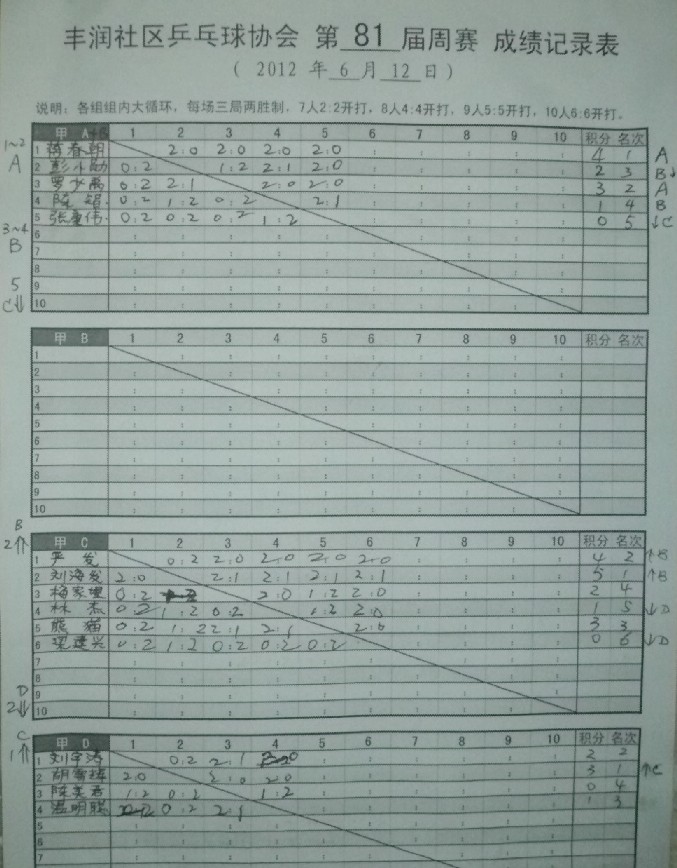 丰润社区乒乓球协会 第 81 届周赛 成绩记录表
( 2012 年 6 月 12 日 )
说明: 各组组内大循环, 每场三局两胜制, 7人2:2开打, 8人4:4开打, 9人5:5开打, 10人6:6开打.
甲 A 1 2 3 4 5 6 7 8 9 10 积分 名次
1~2 A
1 蒋春朝 2:0 2:0 2:0 2:0 4 1 A
2 彭小勋 0:2 1:2 2:1 2:0 2 3 B↓
3 罗少高 0:2 2:1 2:0 2:0 3 2 A
4 陈智 0:2 1:2 0:2 2:1 1 4 B
5 张重伟 0:2 0:2 0:2 1:2 0 5 ↓C
3~4 B
6
7
8
9
10
5 C↓
甲 B 1 2 3 4 5 6 7 8 9 10 积分 名次
1
2
3
4
5
6
7
8
9
10
B 2↑
甲 C 1 2 3 4 5 6 7 8 9 10 积分 名次
1 严发 0:2 2:0 2:0 2:0 2:0 4 2 ↑B
2 刘海发 2:0 2:1 2:1 2:1 2:1 5 1 ↑B
3 梅家理 0:2 2:0 1:2 2:0 2 4
4 林杰 0:2 1:2 0:2 1:2 2:0 1 5 ↓D
5 熊猫 0:2 1:2 2:1 2:1 2:0 3 3
6 梁建兴 0:2 1:2 0:2 0:2 0:2 0 6 ↓D
7
8
9
10
D 2↓
C 1↑
甲 D 1 2 3 4 5 6 7 8 9 10 积分 名次
1 刘宇涛 0:2 2:1 2 2
2 胡雪梅 2:0 2:0 2:0 3 1 ↑C
3 陈美君 1:2 0:2 1:2 0 4
4 温明聪 0:2 2:1 1 3
5
6
7